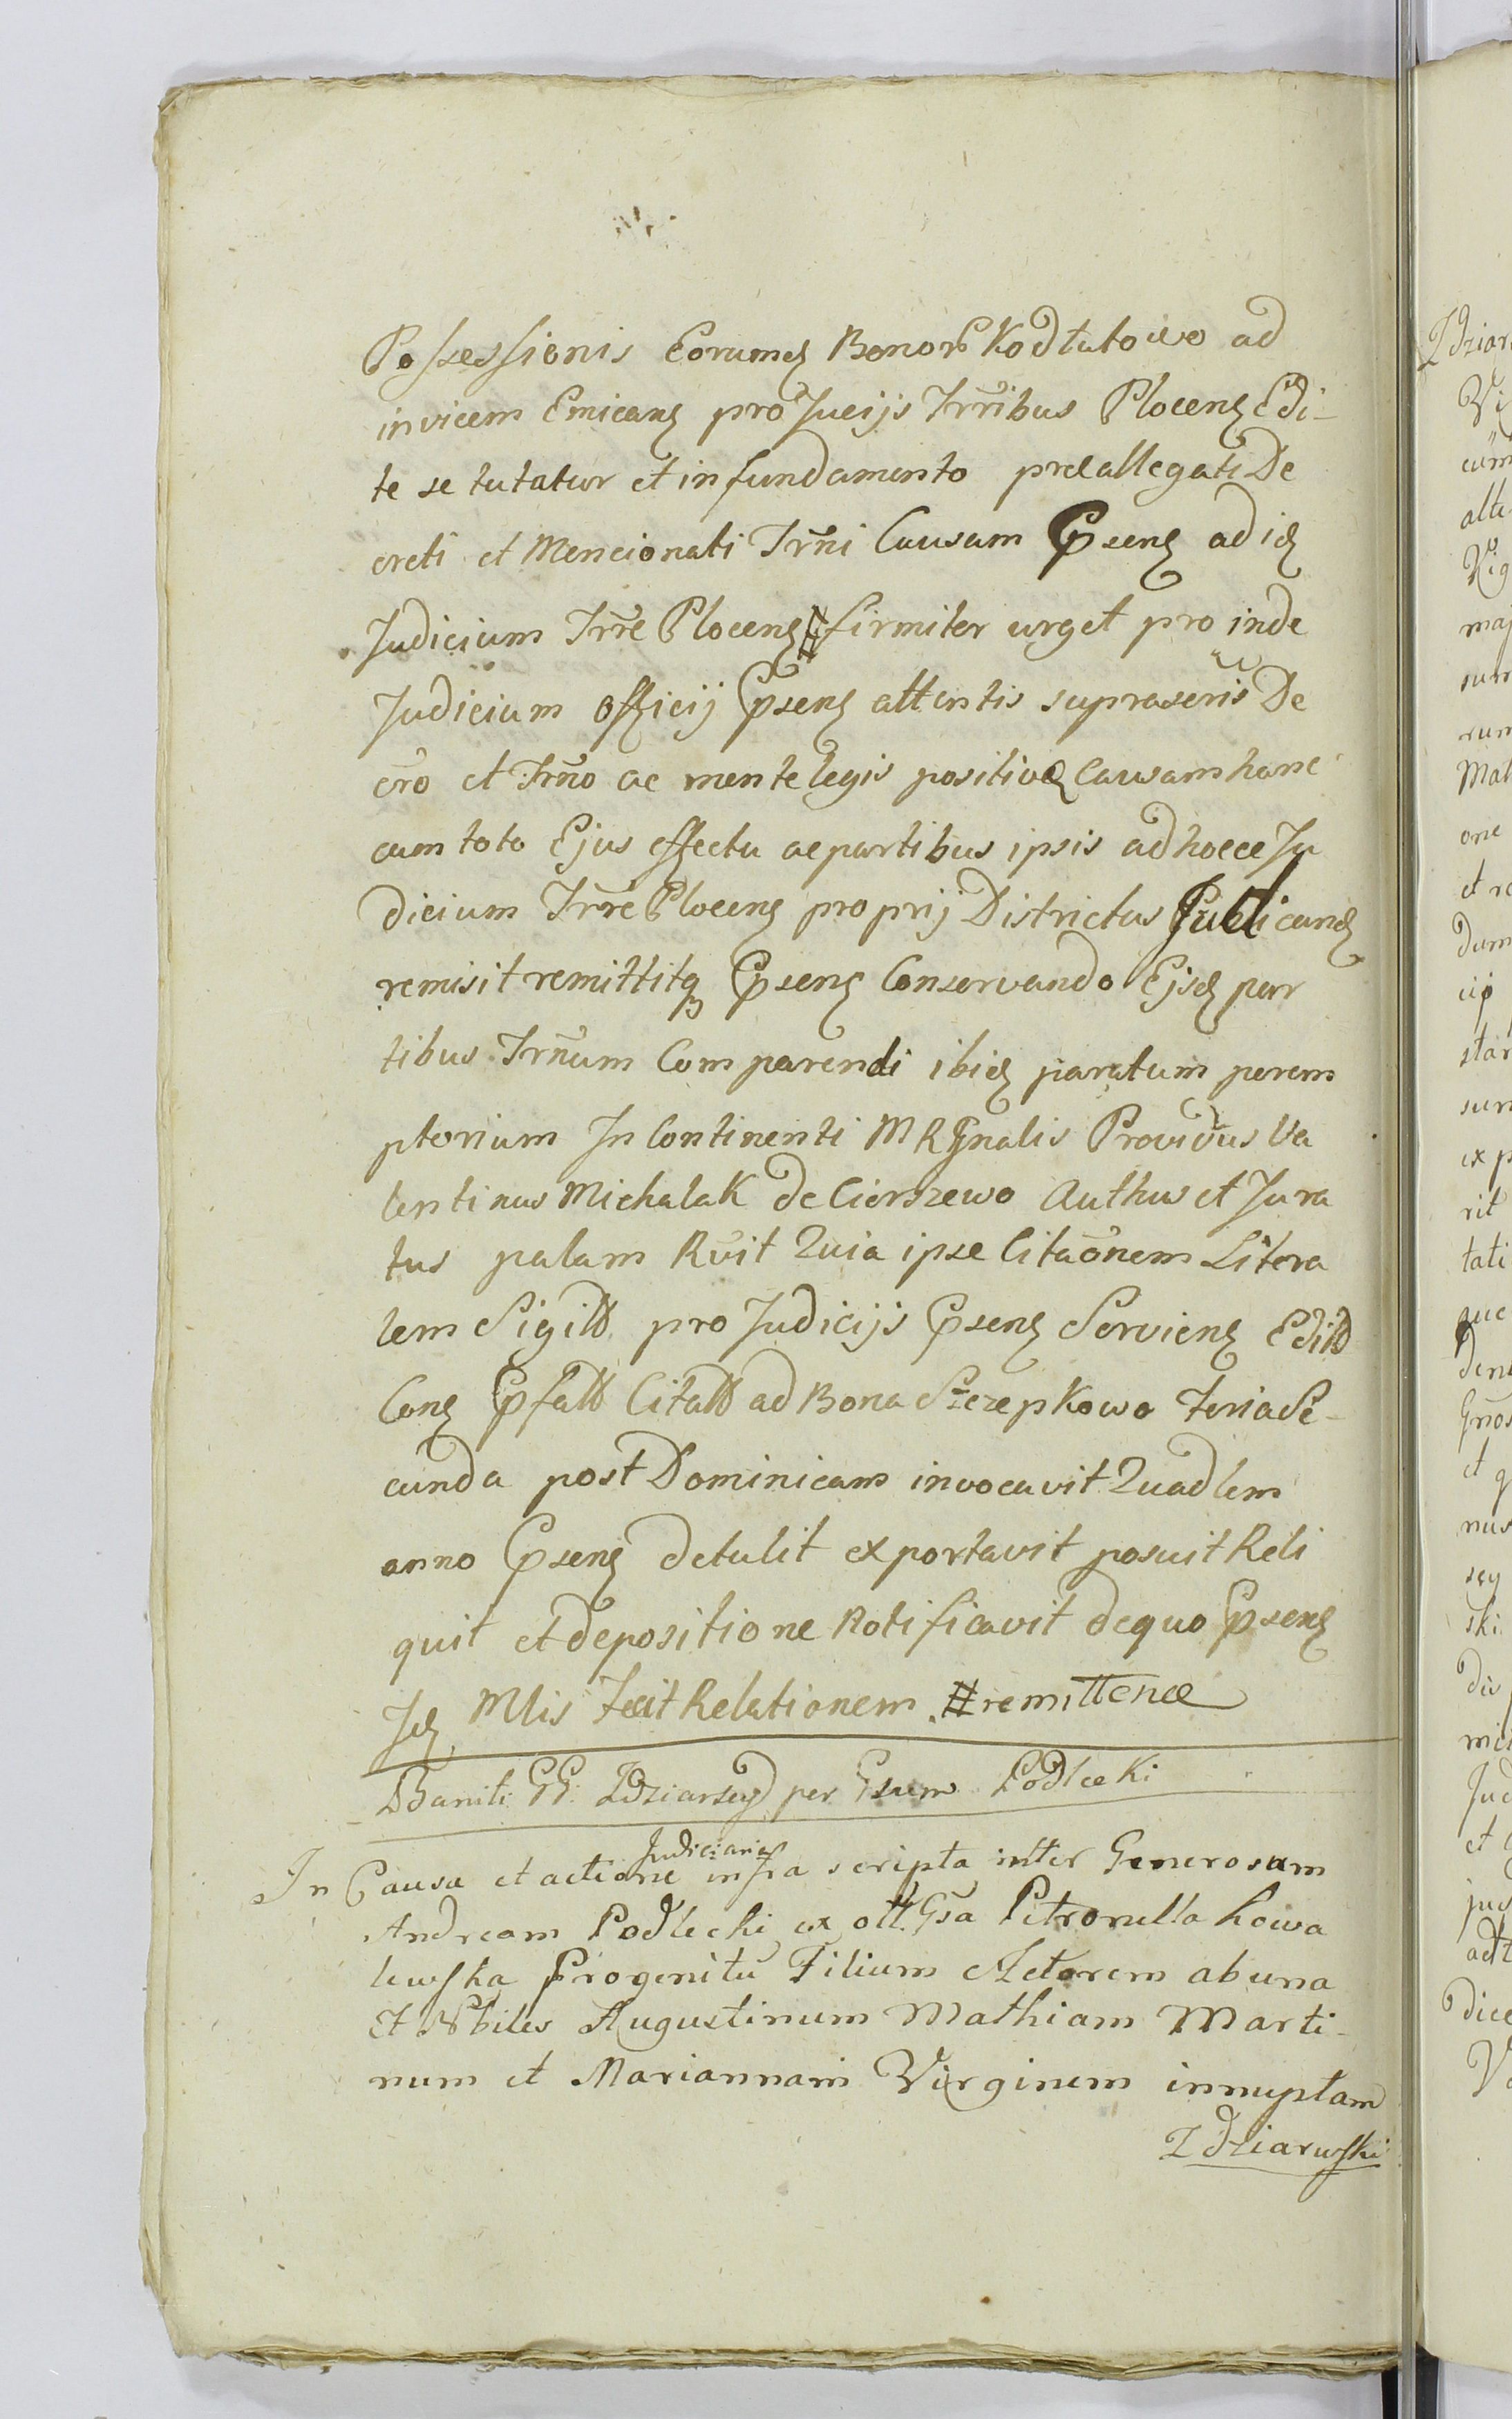 Possessionis Eorumq Bonor Kodlutowo ad
invicem Emicanq pro Jucijs Trribus Plocenq Edi-
te se tutatur et in fundamento preallegati De
creti et Mencionati Trni Causam Pntsenq ad idq
Judicium Trre Plocenq # firmiter urget pro inde
Judicium officij Pntsenq attentis suprascris De
cro et Trno ac mente legis positivae Causam hanc
cum toto Ejus effectu ac partibus ipsis ad hocce Ju
dicium Trre Plocenq proprij Districtus Judicandq
remisit remittitq Pntsenq Conservando Ejsdq par
tibus Trnum Comparendi ibidq paratum perem
ptorium In Continenti MRgnalis Providus Va
lentinus Michalak de Cierszewo Authus et Jura
tus palam Rvit Quia ipse Citaonem Litera
lem Sigill pro Judicijs Pntsenq Servienq Edill
Conq Pfatt Citatt ad Bona Szczepkowo Feria Se-
cunda post Dominicam invocavit Quadlem
anno Pntsenq detulit exportavit posuit Reli
quit et depositione Notificavit de quo Pntsenq
Idq Mlis Fecit Relationem # remittence
Baniti GG. Zdziarscy per Gsum Podlecki
In Causa et actione Judiciaria infra scripta inter Generosum
Andream Podlecki ex olt. Gsa Petronella Kowa
lewska Progenitu Filium Actorem ab una
Et Nbiles Augustinum Mathiam Marti-
num et Mariannam Virginem innuptam
Zdziarwski
Zdziar
Vi
cum
alte
Rig
maj
rum
Mat
one
et re
dum
star
sum
ex p
rit
tati
que
dene
Gnos
et q
nus
scy
ski
Jud
et
jus
adt
dice